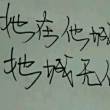 她在他城
她城无